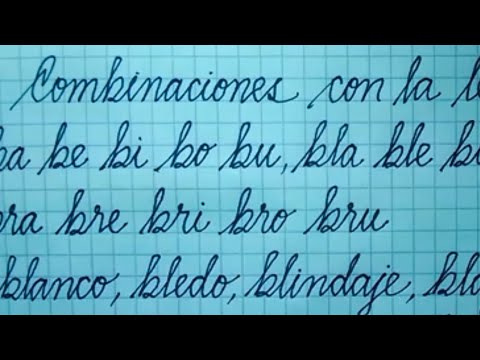 Combinaciones con la
ba be bi bo bu, bla ble
bra bre bri bro bru
blanco, bledo, blindaje,